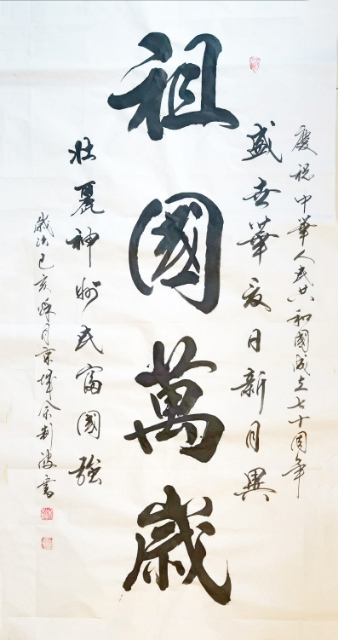 慶祝中華人民共和國成立七十周年
盛世華夏日新月異
祖國萬歲
壯麗神州民富國強
歲次己亥月京城余書